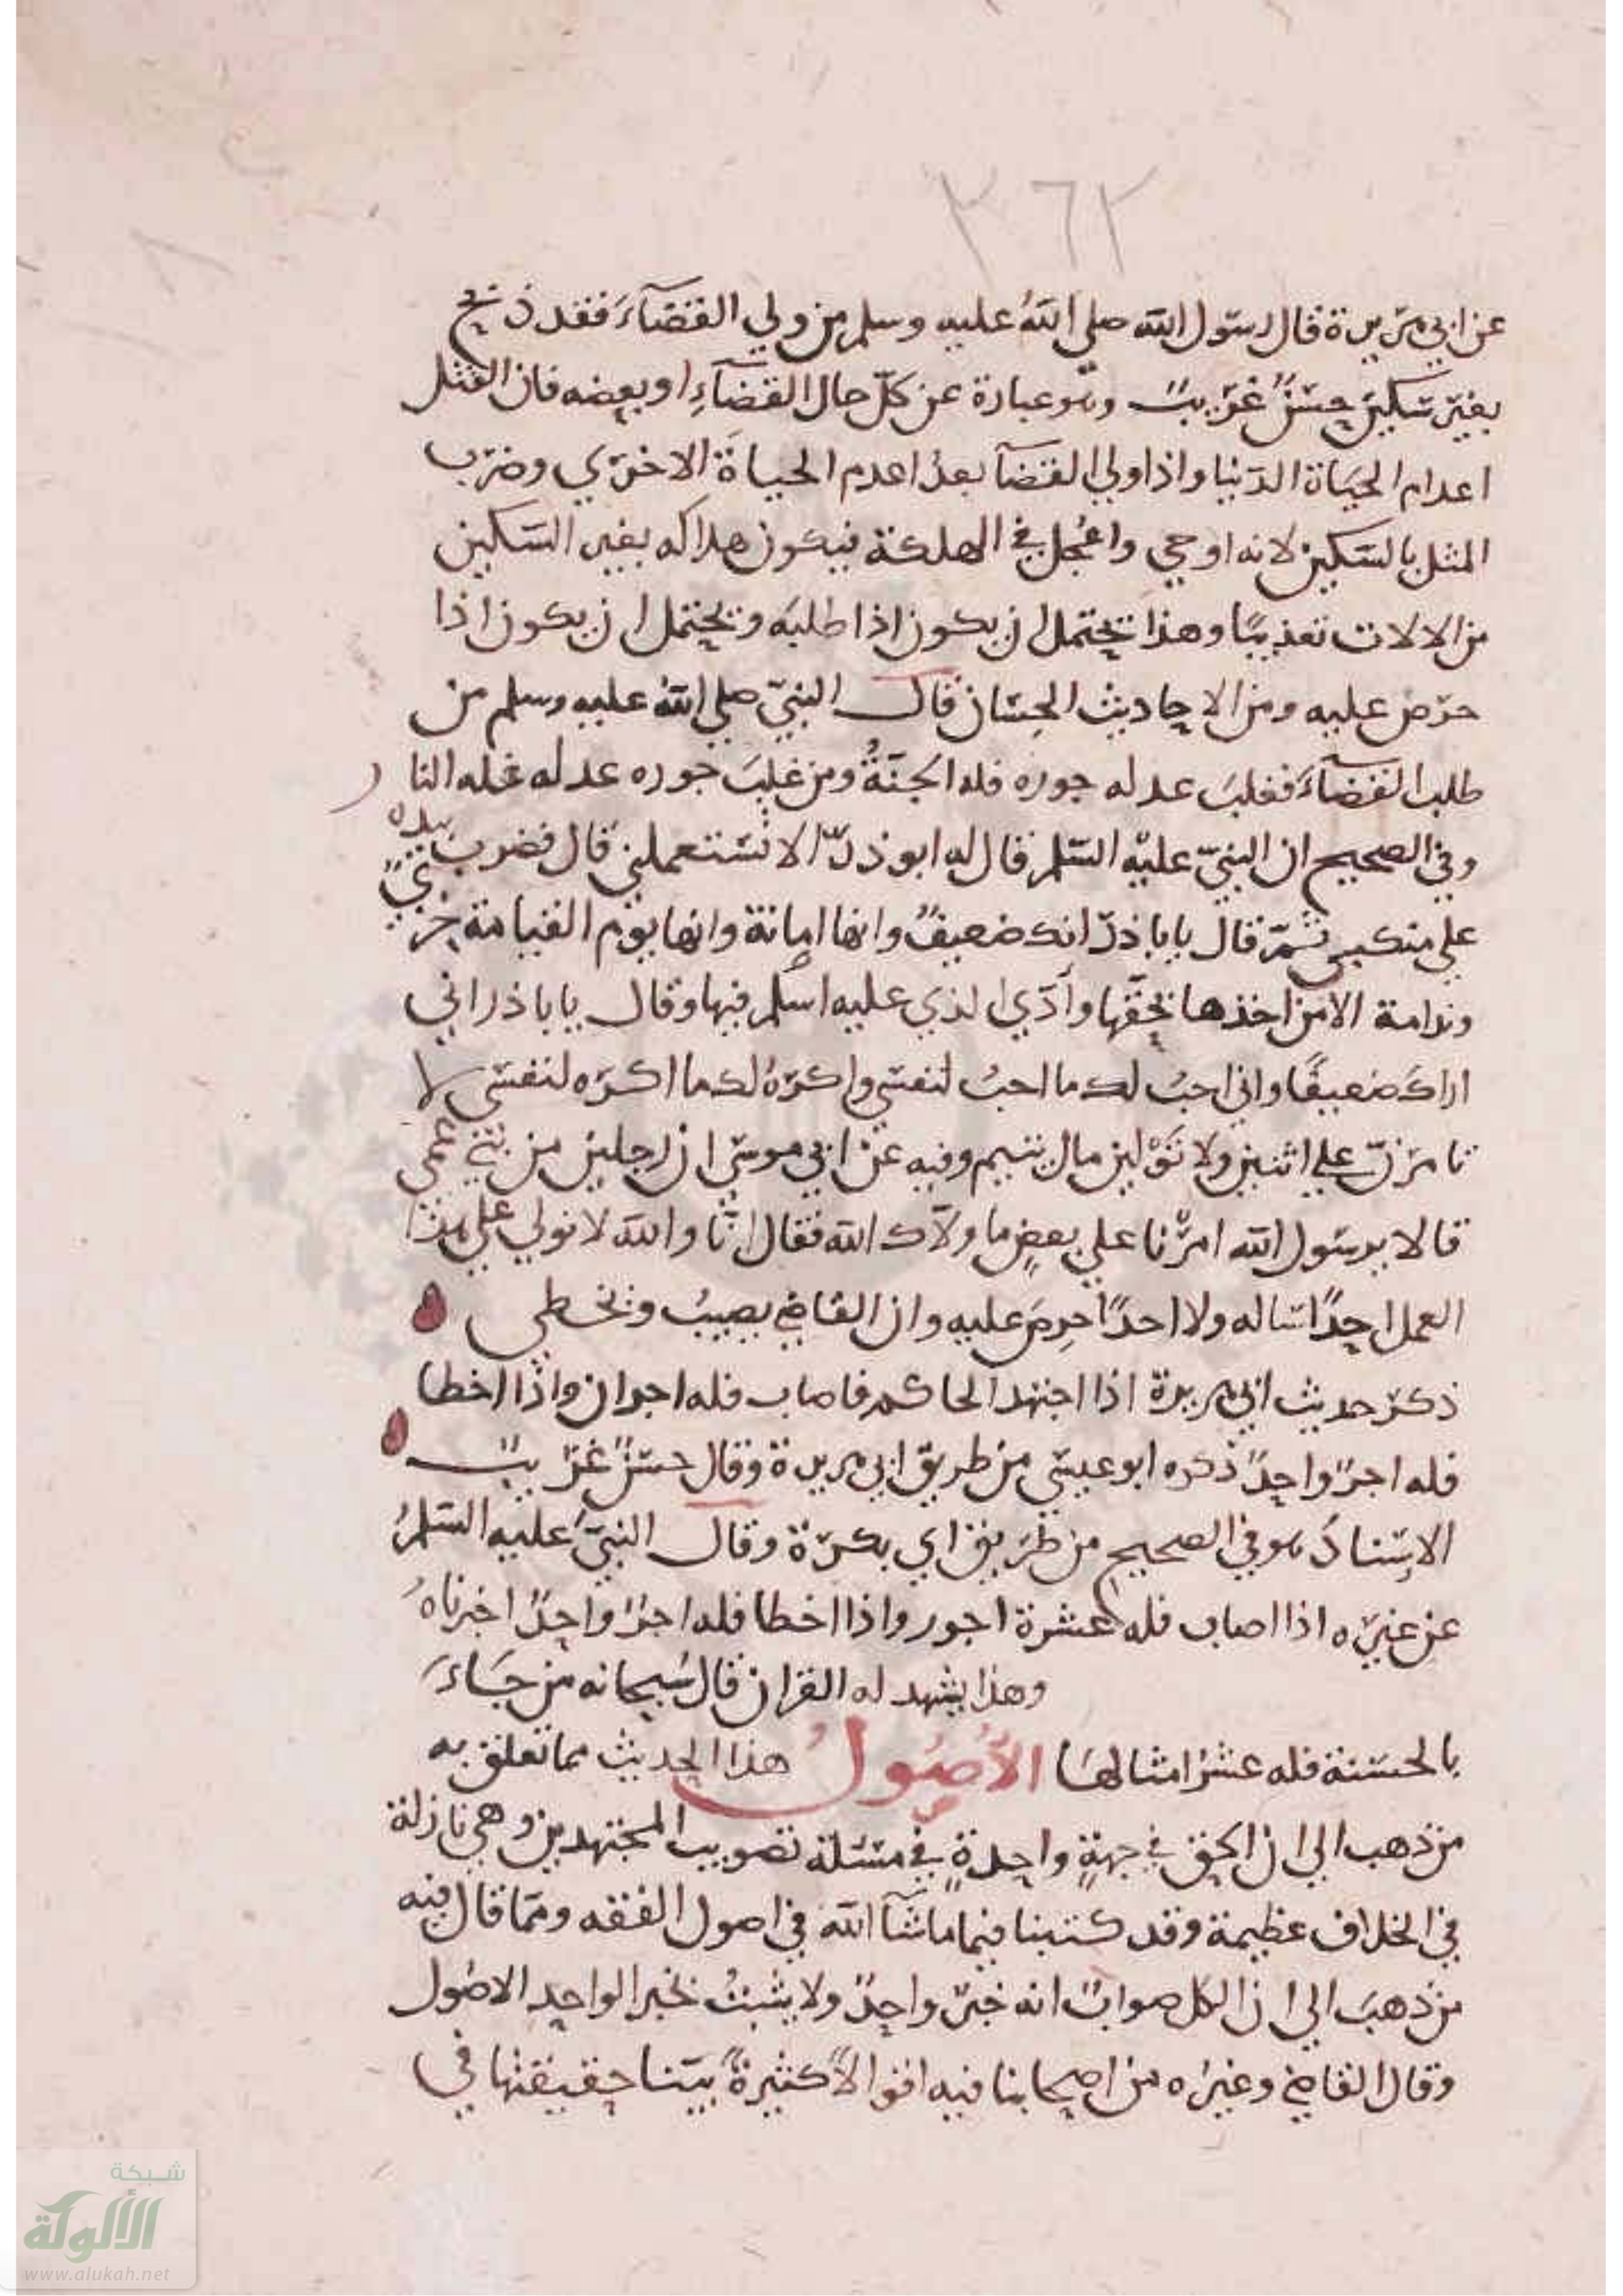 ٣٦٢
عن ابي هريرة قال رسول الله صلي الله عليه وسلم من ولي القضآء فقد ذبح
بغير سكين حسنٌ غريبٌ وهو عبارة عن كلّ حال القضآءِ او بعضه فان القتل
اعدام الحياة الدنيا واذا ولي القضآ بعد اعدم الحياة الاخري وضرب
المثل بالسكين لانه اوحي واعجل في الهلكة فيكون هلاكه بغير السكين
من الالات تعذيبًا وهذا يحتمل ان يكون اذا طلبه ويحتمل ان يكون اذا
حرص عليه ومن الاحاديث الحسان قال النبيّ صلي الله عليه وسلم من
طلب القضآءَ فغلبَ عدله جوره فله الجنةُ ومن غلبَ جوره عدله فله النار
وفي الصحيح ان النبيّ عليه السلم قال له ابو ذرّ الا تستعملني قال فضرب بيده
علي منكبي ثمّ قال يابا ذرّ انك ضعيفٌ وانها امانة وانها يوم القيامة خزيٌ
وندامة الا من اخذها بحقّها وأدّي الذي عليه اسلم فيها وقال يابا ذر اني
اراك ضعيفًا واني احبُ لك ما احبُ لنفسي واكرهُ لك ما اكره لنفسي لا
تامرنّ علي اثنين ولا تَوَلين مال يتيم وفيه عن ابي موسي ان رجلين من بني عمي
قالا يرسول الله امرّنا علي بعضِ ما ولاّك الله فقال انّا والله لا نولي علي هذا
العمل احدًا ساله ولا احدًا حرِصَ عليه وان القاضي يصيبُ ويخطي
ذكر حديث ابي هريرة اذا اجتهد الحاكم فاصاب فله اجران واذا اخطا
فله اجرٌ واحدٌ ذكره ابو عيسي من طريق ابي هريرة وقال حسنٌ غريبٌ
الاسناد هو في الصحيح من طريق ابي بكرة وقال النبيّ عليه السلمُ
عن غيره اذا اصاب فله عشرة اجور واذا اخطا فله اجرٌ واحدٌ اخبرناهُ
وهذا يشهد له القران قال سُبحانه من جَاءَ
بالحسنة فله عشرُ امثالها الأُصُولُ هذا الحديث مما تعلق به
من ذهب الي ان الحق في جهةٍ واحدةٍ في مسئلة تصويب المجتهدين وهي نازلة
في الخلاف عظيمة وقد كتبنا فيها ما شآ الله في اصول الفقه ومما قال فيه
من ذهبَ الي ان الكل صوابٌ انه خبرٌ واحدٌ ولا يثبتُ بخبر الواحدِ الاصُول
وقال القاضي وغيره من اصحابنا فيه اقوالاً كثيرةً بيّنا حقيقتها في
شبكة
الألوكة
www.alukah.net